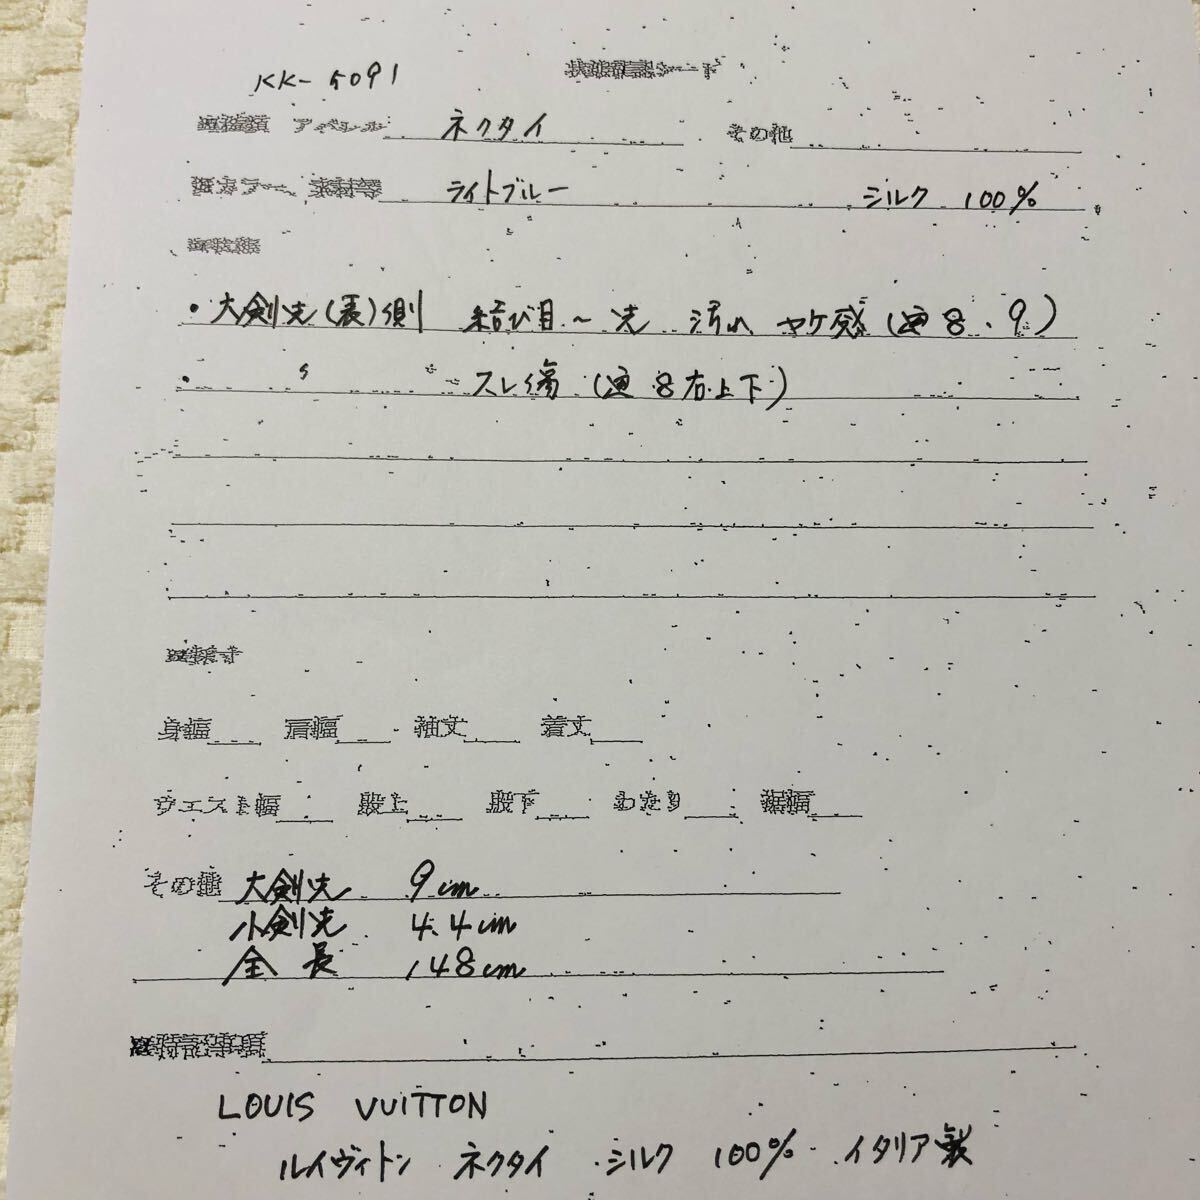 KK-5091
状態確認シート
アパレル ネクタイ その他
カラー、素材等 ライトブルー シルク 100%
・大剣先(表)側 結び目~先 汚れ ヤケ感(画8、9)
・ 〃 スレ傷(画8右上下)
身幅 肩幅 袖丈 着丈
ウエスト幅 股上 股下 わたり 裾幅
その他 大剣先 9cm
小剣先 4.4cm
全長 148cm
特記事項
LOUIS VUITTON
ルイヴィトン ネクタイ シルク 100% イタリア製